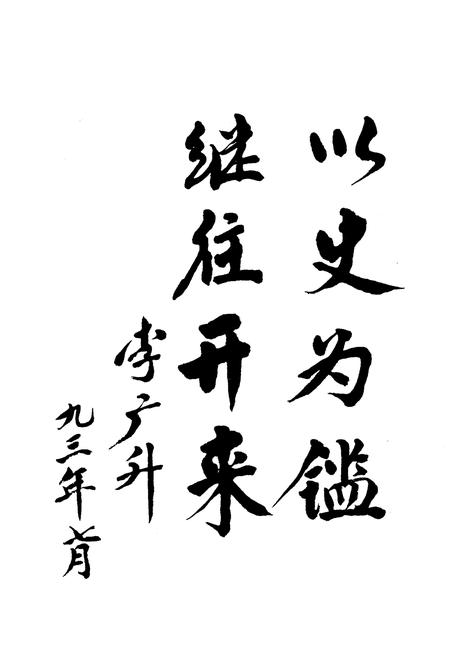 以史为鑑
继往开来
李广升
九三年七月